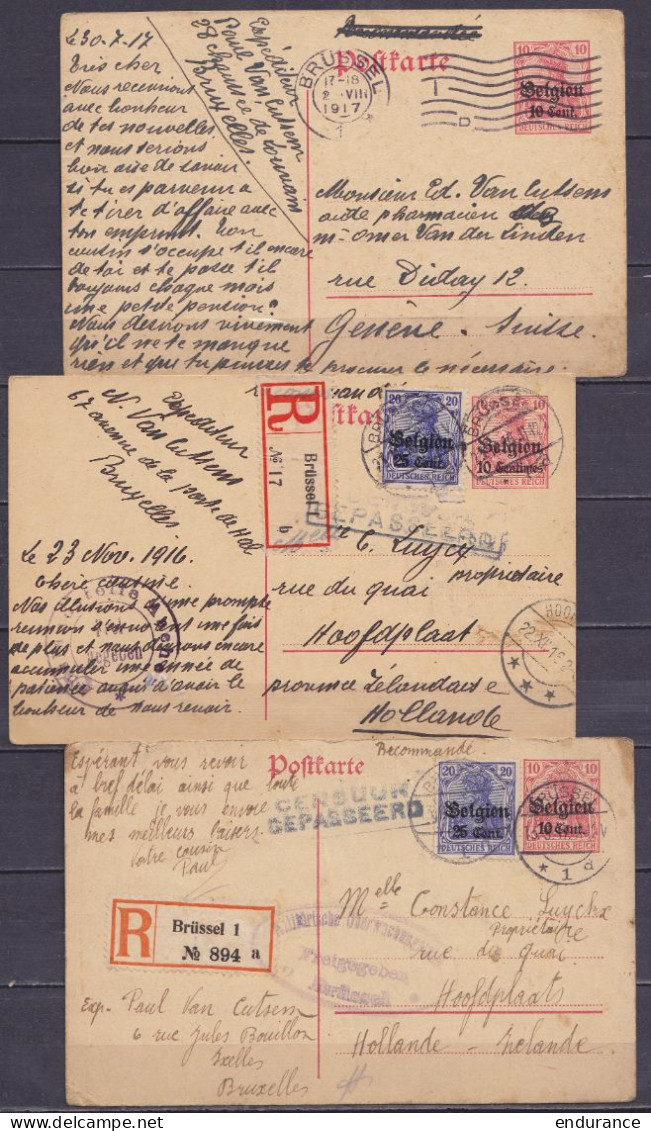 Postkarte
Expéditeur
Paul Van Cutsem
28 chaussée de Louvain
Bruxelles.
BRÜSSEL
17-18
2 VIII
1917
1
D
10 10
Belgien
10 Cent.
DEUTSCHES REICH
Le 30-7-17
Très cher
Nous recevrions
avec bonheur
de tes nouvelles
et nous serions
bien aise de savoir
si tu es parvenu à
te tirer d'affaire avec
ton emprunt. Ton
cousin s'occupe t'il encore
de toi et te passe t'il
toujours chaque mois
une petite pension?
Nous desirons vivement
qu'il ne te manque
rien et que tu puisses te procurer le nécessaire.
Monsieur Ed. Van Cutsem
aide pharmacien
Mr Omer Van der Linden
rue Diday 12.
Genève. Suisse.
Expéditeur
N. Van Cutsem
67 avenue de la Porte de Hal
Bruxelles
R
Brüssel 1
№ 17 b
20 20
Belgien
25 Cent.
DEUTSCHES REICH
10
Belgien
10 Centimes
DEUTSCHES REICH
GEPASSEERD
Le 23 Nov. 1916.
Chère cousine
Nos illusions d'une prompte
reunion s'envolent une fois
de plus et nous devrons encore
accumuler une année de
patience avant d'avoir le
bonheur de vous revoir.
C. Luycx
propriétaire
rue du quai
Hoofdplaat
province Zélandaise
Hollande
Postkarte
Recommandé
Espérant vous revoir
à bref délai ainsi que toute
la famille je vous envoie
mes meilleurs baisers
Votre cousin
Paul
CENSUUR
GEPASSEERD
20 20
Belgien
25 Cent.
DEUTSCHES REICH
10 10
Belgien
10 Cent.
DEUTSCHES REICH
BRÜSSEL
* 1 a
R
Brüssel 1
№ 894 a
Freigegeben
Melle Constance Luyckx
Propriétaire
rue du Quai
Hoofdplaat
Hollande - Zelande
Exp. Paul Van Cutsem
6 rue Jules Bouillon
Ixelles
Bruxelles
endurance